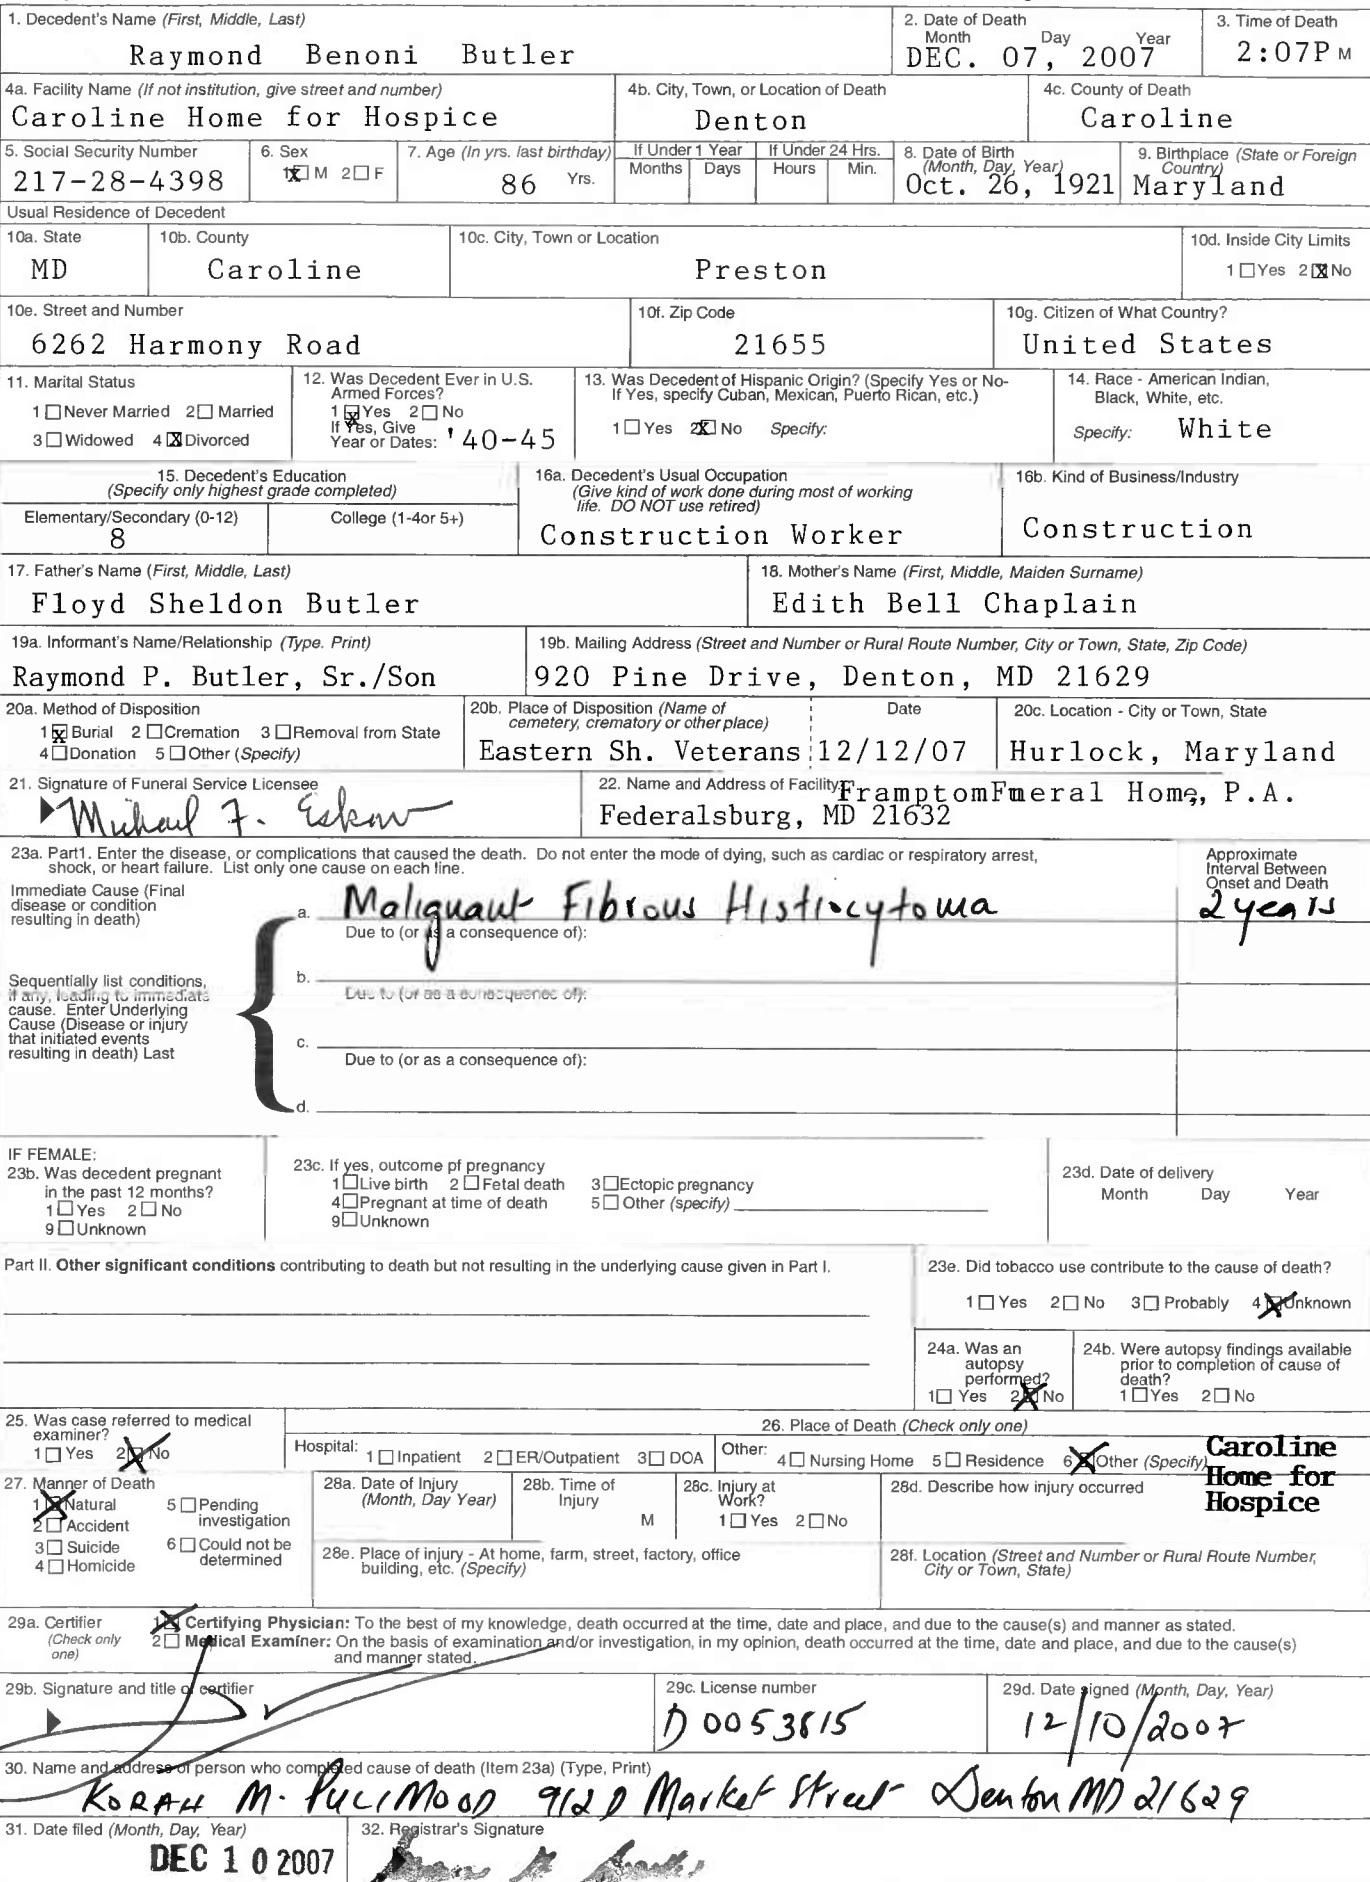 1. Decedent's Name (First, Middle, Last)
Raymond Benoni Butler
2. Date of Death
Month Day Year
DEC. 07, 2007
3. Time of Death
2:07P M
4a. Facility Name (If not institution, give street and number)
Caroline Home for Hospice
4b. City, Town, or Location of Death
Denton
4c. County of Death
Caroline
5. Social Security Number
217-28-4398
6. Sex
1☒ M 2☐ F
7. Age (In yrs. last birthday)
86 Yrs.
If Under 1 Year
Months Days
If Under 24 Hrs.
Hours Min.
8. Date of Birth
(Month, Day, Year)
Oct. 26, 1921
9. Birthplace (State or Foreign
Country)
Maryland
Usual Residence of Decedent
10a. State
MD
10b. County
Caroline
10c. City, Town or Location
Preston
10d. Inside City Limits
1 ☐Yes 2☒No
10e. Street and Number
6262 Harmony Road
10f. Zip Code
21655
10g. Citizen of What Country?
United States
11. Marital Status
1 ☐Never Married 2☐ Married
3 ☐Widowed 4 ☒Divorced
12. Was Decedent Ever in U.S.
Armed Forces?
1 ☒Yes 2☐No
If Yes, Give
Year or Dates: '40-45
13. Was Decedent of Hispanic Origin? (Specify Yes or No-
If Yes, specify Cuban, Mexican, Puerto Rican, etc.)
1☐Yes 2☒ No Specify:
14. Race - American Indian,
Black, White, etc.
Specify: White
15. Decedent's Education
(Specify only highest grade completed)
Elementary/Secondary (0-12)
8
College (1-4or 5+)
16a. Decedent's Usual Occupation
(Give kind of work done during most of working
life. DO NOT use retired)
Construction Worker
16b. Kind of Business/Industry
Construction
17. Father's Name (First, Middle, Last)
Floyd Sheldon Butler
18. Mother's Name (First, Middle, Maiden Surname)
Edith Bell Chaplain
19a. Informant's Name/Relationship (Type. Print)
Raymond P. Butler, Sr./Son
19b. Mailing Address (Street and Number or Rural Route Number, City or Town, State, Zip Code)
920 Pine Drive, Denton, MD 21629
20a. Method of Disposition
1☒ Burial 2 ☐Cremation 3 ☐Removal from State
4☐Donation 5 ☐Other (Specify)
20b. Place of Disposition (Name of
cemetery, crematory or other place)
Eastern Sh. Veterans
Date
12/12/07
20c. Location - City or Town, State
Hurlock, Maryland
21. Signature of Funeral Service Licensee
Michael F. Eskow
22. Name and Address of Facility FramptomFuneral Home, P.A.
Federalsburg, MD 21632
23a. Part1. Enter the disease, or complications that caused the death. Do not enter the mode of dying, such as cardiac or respiratory arrest,
shock, or heart failure. List only one cause on each line.
Approximate
Interval Between
Onset and Death
Immediate Cause (Final
disease or condition
resulting in death)
a. Malignant Fibrous Histiocytoma
2 years
Due to (or as a consequence of):
Sequentially list conditions,
if any, leading to immediate
cause. Enter Underlying
Cause (Disease or injury
that initiated events
resulting in death) Last
b.
Due to (or as a consequence of):
c.
Due to (or as a consequence of):
d.
IF FEMALE:
23b. Was decedent pregnant
in the past 12 months?
1☐Yes 2☐ No
9☐Unknown
23c. If yes, outcome pf pregnancy
1☐Live birth 2☐ Fetal death 3☐Ectopic pregnancy
4☐Pregnant at time of death 5☐ Other (specify)
9☐Unknown
23d. Date of delivery
Month Day Year
Part II. Other significant conditions contributing to death but not resulting in the underlying cause given in Part I.
23e. Did tobacco use contribute to the cause of death?
1☐ Yes 2☐ No 3☐ Probably 4☒Unknown
24a. Was an
autopsy
performed?
1☐ Yes 2☒No
24b. Were autopsy findings available
prior to completion of cause of
death?
1☐Yes 2☐ No
25. Was case referred to medical
examiner?
1☐ Yes 2☒No
26. Place of Death (Check only one)
Hospital: 1☐Inpatient 2☐ER/Outpatient 3☐ DOA
Other: 4☐Nursing Home 5☐ Residence 6☒Other (Specify)
Caroline
Home for
Hospice
27. Manner of Death
1☒Natural 5☐Pending
investigation
2☐Accident
3☐Suicide 6☐Could not be
determined
4☐Homicide
28a. Date of Injury
(Month, Day Year)
28b. Time of
Injury
M
28c. Injury at
Work?
1☐Yes 2☐No
28d. Describe how injury occurred
28e. Place of injury - At home, farm, street, factory, office
building, etc. (Specify)
28f. Location (Street and Number or Rural Route Number,
City or Town, State)
29a. Certifier
(Check only
one)
1☒ Certifying Physician: To the best of my knowledge, death occurred at the time, date and place, and due to the cause(s) and manner as stated.
2☐ Medical Examiner: On the basis of examination and/or investigation, in my opinion, death occurred at the time, date and place, and due to the cause(s)
and manner stated.
29b. Signature and title of certifier
29c. License number
D0053815
29d. Date signed (Month, Day, Year)
12/10/2007
30. Name and address of person who completed cause of death (Item 23a) (Type, Print)
KORAH M. PULIMOOD 912 D Market Street Denton MD 21629
31. Date filed (Month, Day, Year)
DEC 10 2007
32. Registrar's Signature